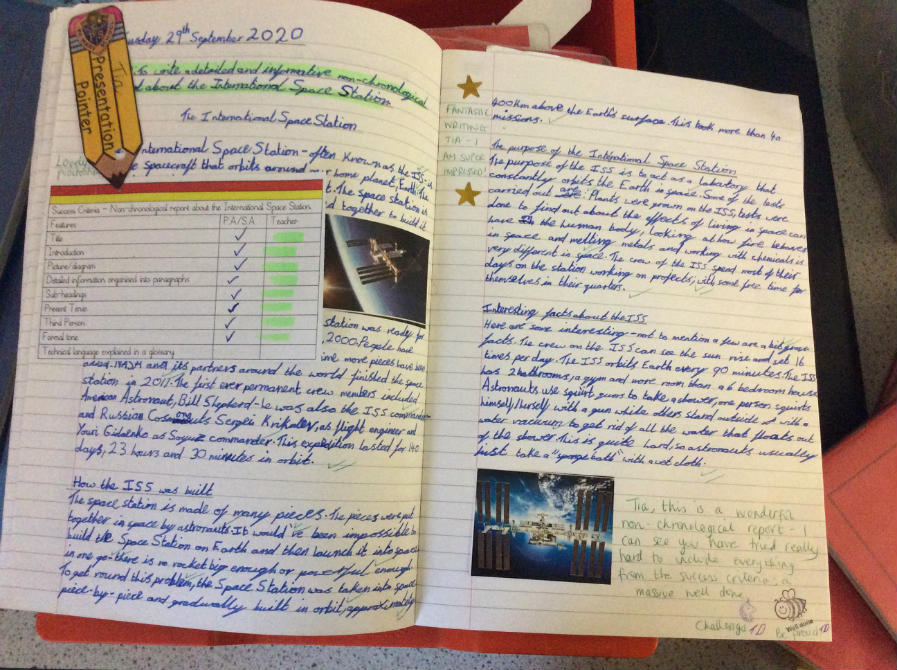 Tuesday 29th September 2020
write a detailed and informative non-chronological
about the International Space Station
The International Space Station
International Space Station - often known as the ISS - is
spacecraft that orbits around our home planet, Earth. The
t. The space station is
d together to build it
Presentation
Pointer
Tia
Lovely
Success Criteria - Non-chronological report about the International Space Station
Features P.A/S.A Teacher
Title ✓
Introduction ✓
Picture/diagram ✓
Detailed information organised into paragraphs ✓
Sub-headings ✓
Present Tense ✓
Third Person ✓
Formal tone ✓
Technical language explained in a glossary
station was ready for
2000. People have
ime more pieces have been
added. NASA and its partners around the world finished the space
station in 2011. The first ever permanent crew members included
American Astronaut, Bill Shepherd - he was also the ISS commander
and Russian Cosmonauts Sergei Krikalev, as flight engineer and
Youri Gidzenko as Soyuz commander. This expedition lasted for 140
days, 23 hours and 30 minutes in orbit.
How the ISS was built
The space station is made of many pieces. The pieces were put
together in space by astronauts. It would've been impossible to
build the Space Station on Earth and then launch it into space
in one go - there is no rocket big enough or powerful enough.
To get round this problem, the Space Station was taken into space
piece-by-piece and gradually built in orbit, approximately
400km above the Earth's surface. This took more than 40
missions.
FANTASTIC
WRITING
TIA - I
AM SUPER
IMPRESSED!
The purpose of the International Space Station
The purpose of the ISS is to act as a labortory that
constantly orbits the Earth in space. Some of the tests
carried out are: Plants were grown on the ISS, tests were
done to find out about the effects of living in space can
have on the human body, looking at how fire behaves
in space and melting metals and working with chemicals is
very different in space. The crew of the ISS spend most of their
days on the station working on projects, with some free time for
themselves in their quarters.
Interesting facts about the ISS
Here are some interesting - not to mention a few are a bit gross
facts. The crew on the ISS can see the sun rise and set 16
times per day. The ISS orbits Earth every 90 minutes. The ISS
has 2 bathrooms, a gym and more room than a 6 bedroom house.
Astronauts use squirt guns to take a shower, one person squirts
himself/herself with a gun while others stand outside it with a
water vacuum to get rid of all the water that floats out
of the shower. This is quite hard, so astronauts usually
just take a "sponge bath" with a wet cloth.
Tia, this is a wonderful
non-chronological report - I
can see you have tried really
hard to include everything
from the success criteria: a
massive well done.
Challenge 1D
Well done
Be proud 1D